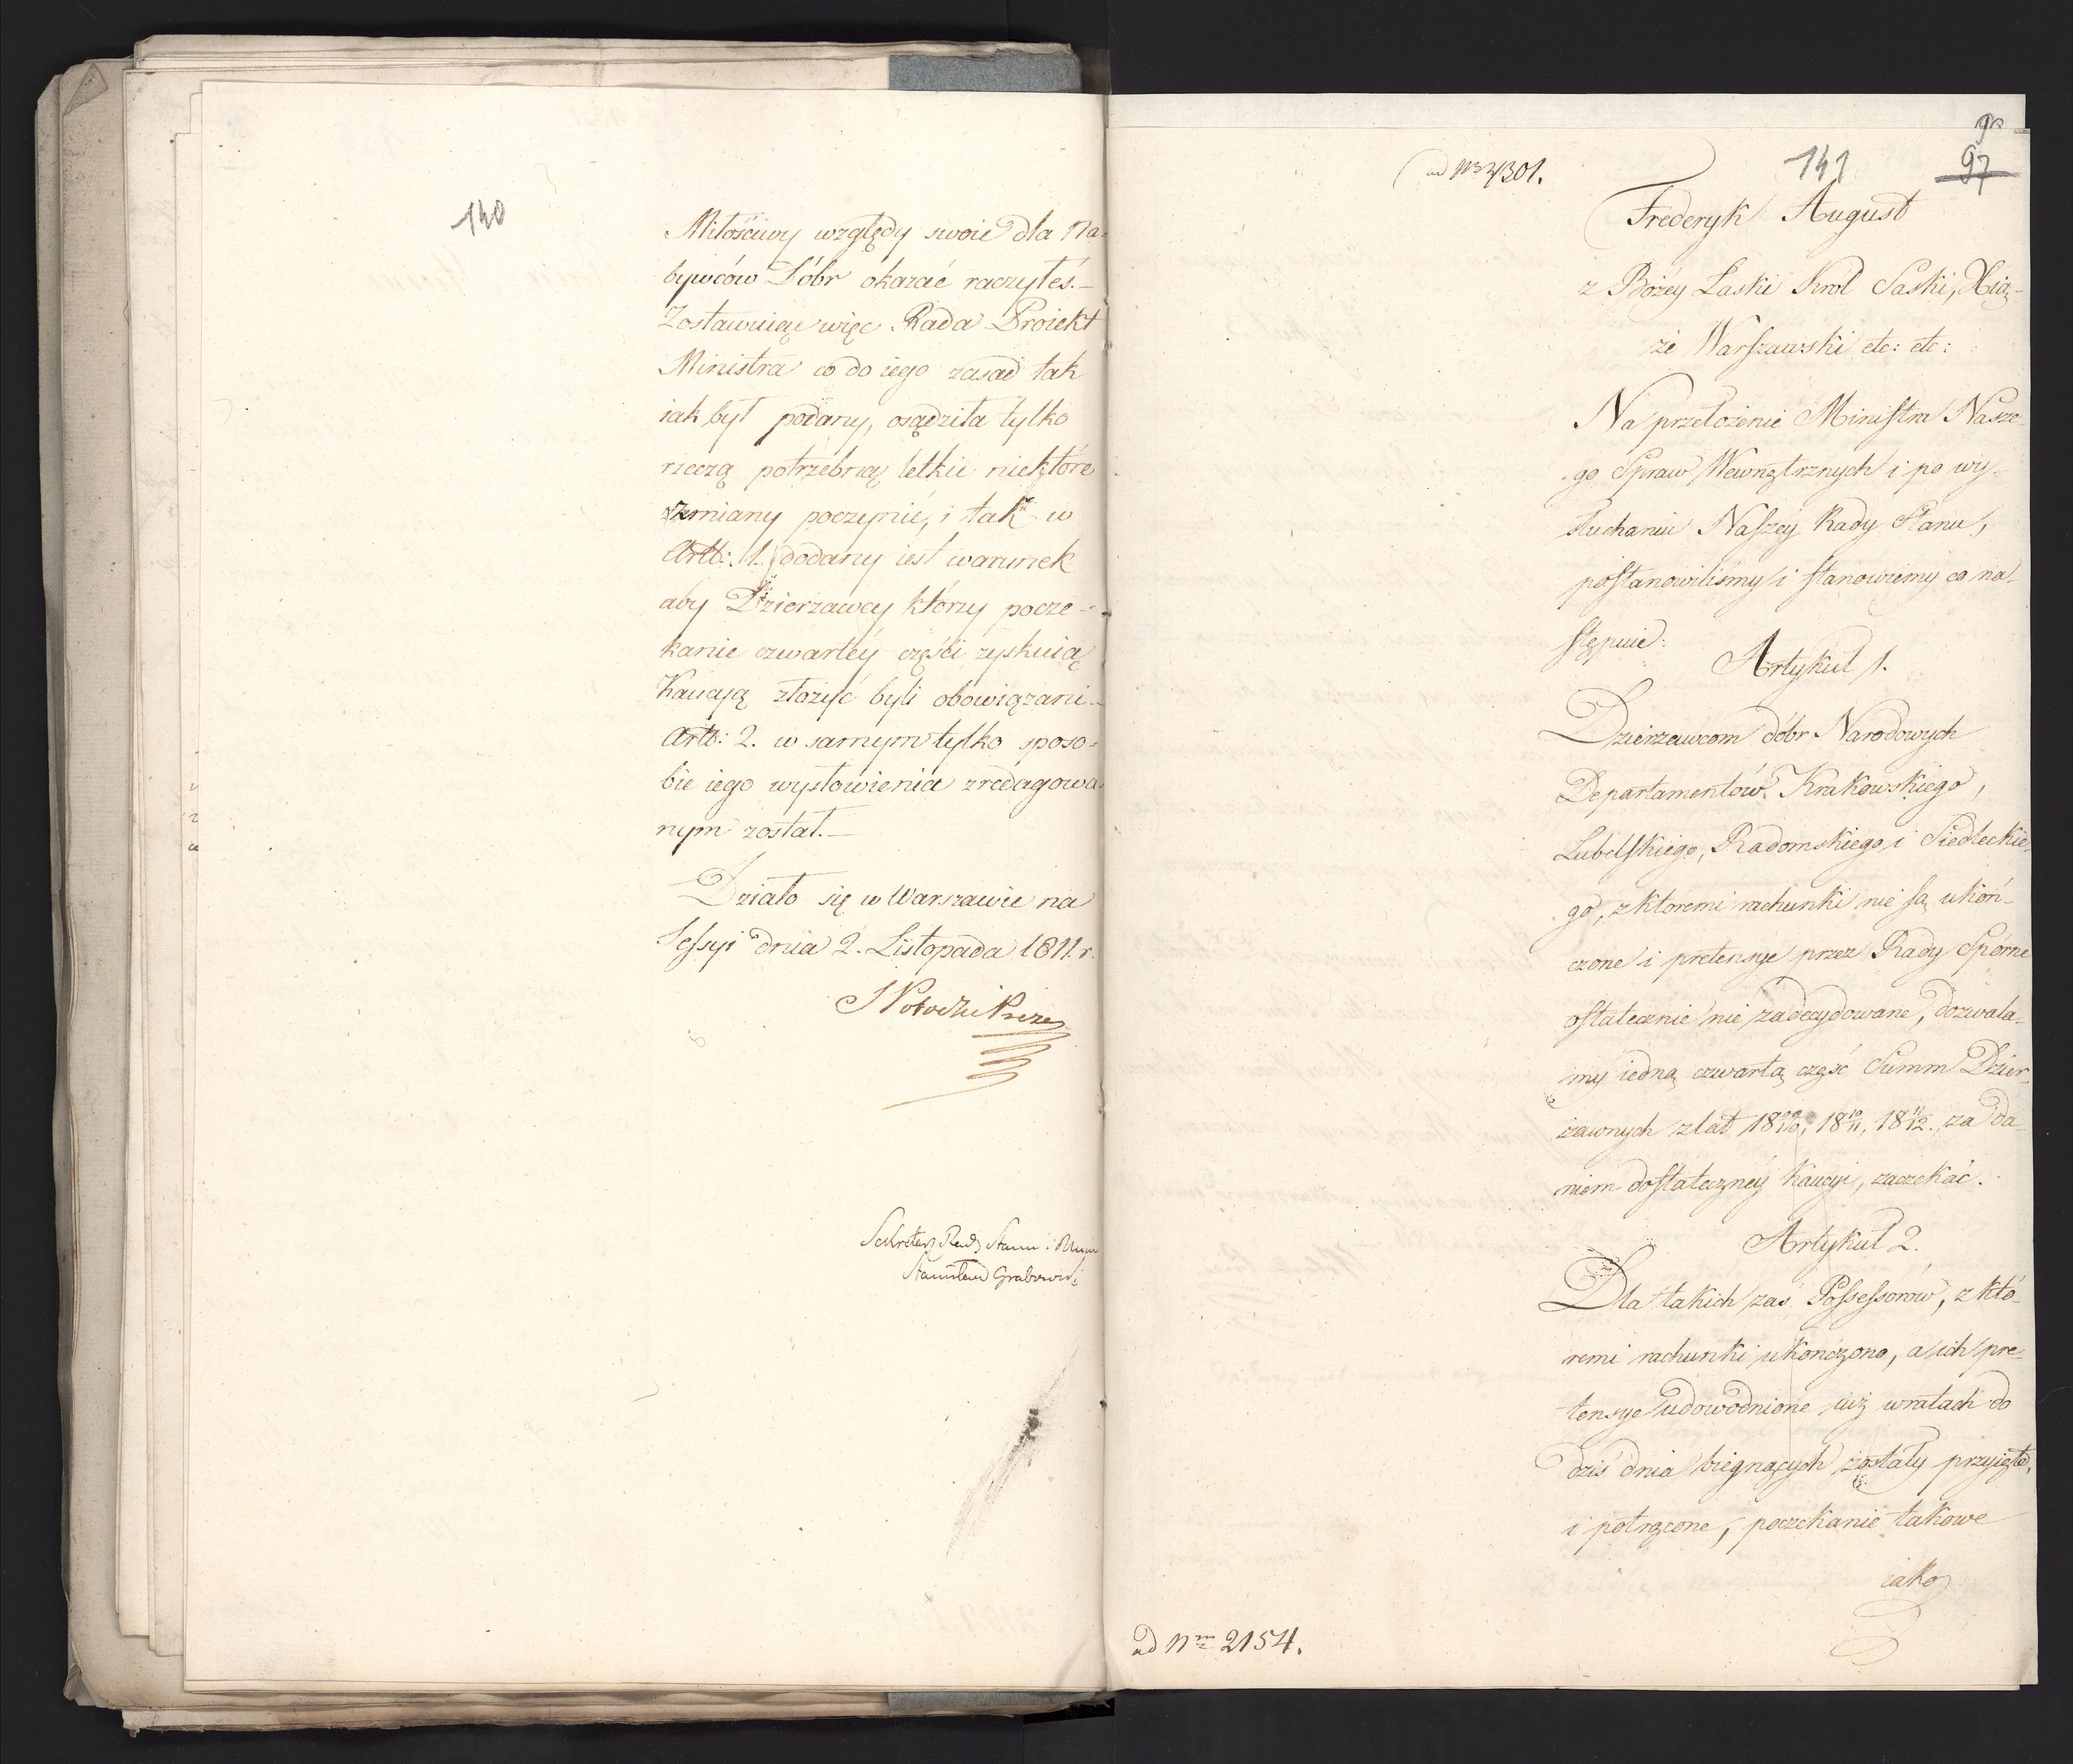 140
Miłościwy względy swoie dla Na-
bywców Dóbr okazać raczyłeś.—
Zostawuiąc więc Rada Proiekt
Ministra co do iego zasad tak
iak był podany, osądziła tylko
rzeczą potrzebną letkie niektóre
zmiany poczynić, i tak w
Artt: 1. dodany iest warunek
aby Dzierzawcy którzy pocze-
kanie czwartéy części zyskuią
Kaucyą złożyć byli obowiązani.—
Artt: 2. w samym tylko sposo-
bie iego wysłowienia zredagowa-
nym został.—
Działo się w Warszawie na
Sessyi dnia 2. Listopada 1811. r.
S Potocki Prezes
Sekretarz Rady Stanu i Min
Stanisław Grabowski
98
141
97
ad 301.
Frederyk August
z Bożéy Łaski Król Saski, Xią-
że Warszawski etc: etc:
Na przełożenie Ministra Nasze-
go Spraw Wewnętrznych i po wy-
słuchaniu Naszéy Rady Stanu,
postanowiliśmy i stanowiemy co na-
stępuie:
Artykuł 1.
Dzierzawcom dóbr Narodowych
Departamentów Krakowskiego,
Lubelskiego, Radomskiego i Siedleckie-
go, z któremi rachunki nie są ukoń-
czone i pretensye przez Rady Spórne
ostatecznie nie zadecydowane, dozwala-
my iedną czwartą część Summ Dzier-
żawnych z lat 18 09/10, 18 10/11, 18 11/12. za da-
niem dostatecznéy Kaucyi, zaczekać.
Artykuł 2.
Dla takich zaś Possessorów, z któ-
remi rachunki ukończono, a ich pre-
tensye udowodnione iuż w ratach do
dziś dnia biegnących zostały przyięte,
i potrącone, poczekanie takowe
iako
ad Nrm 2154.